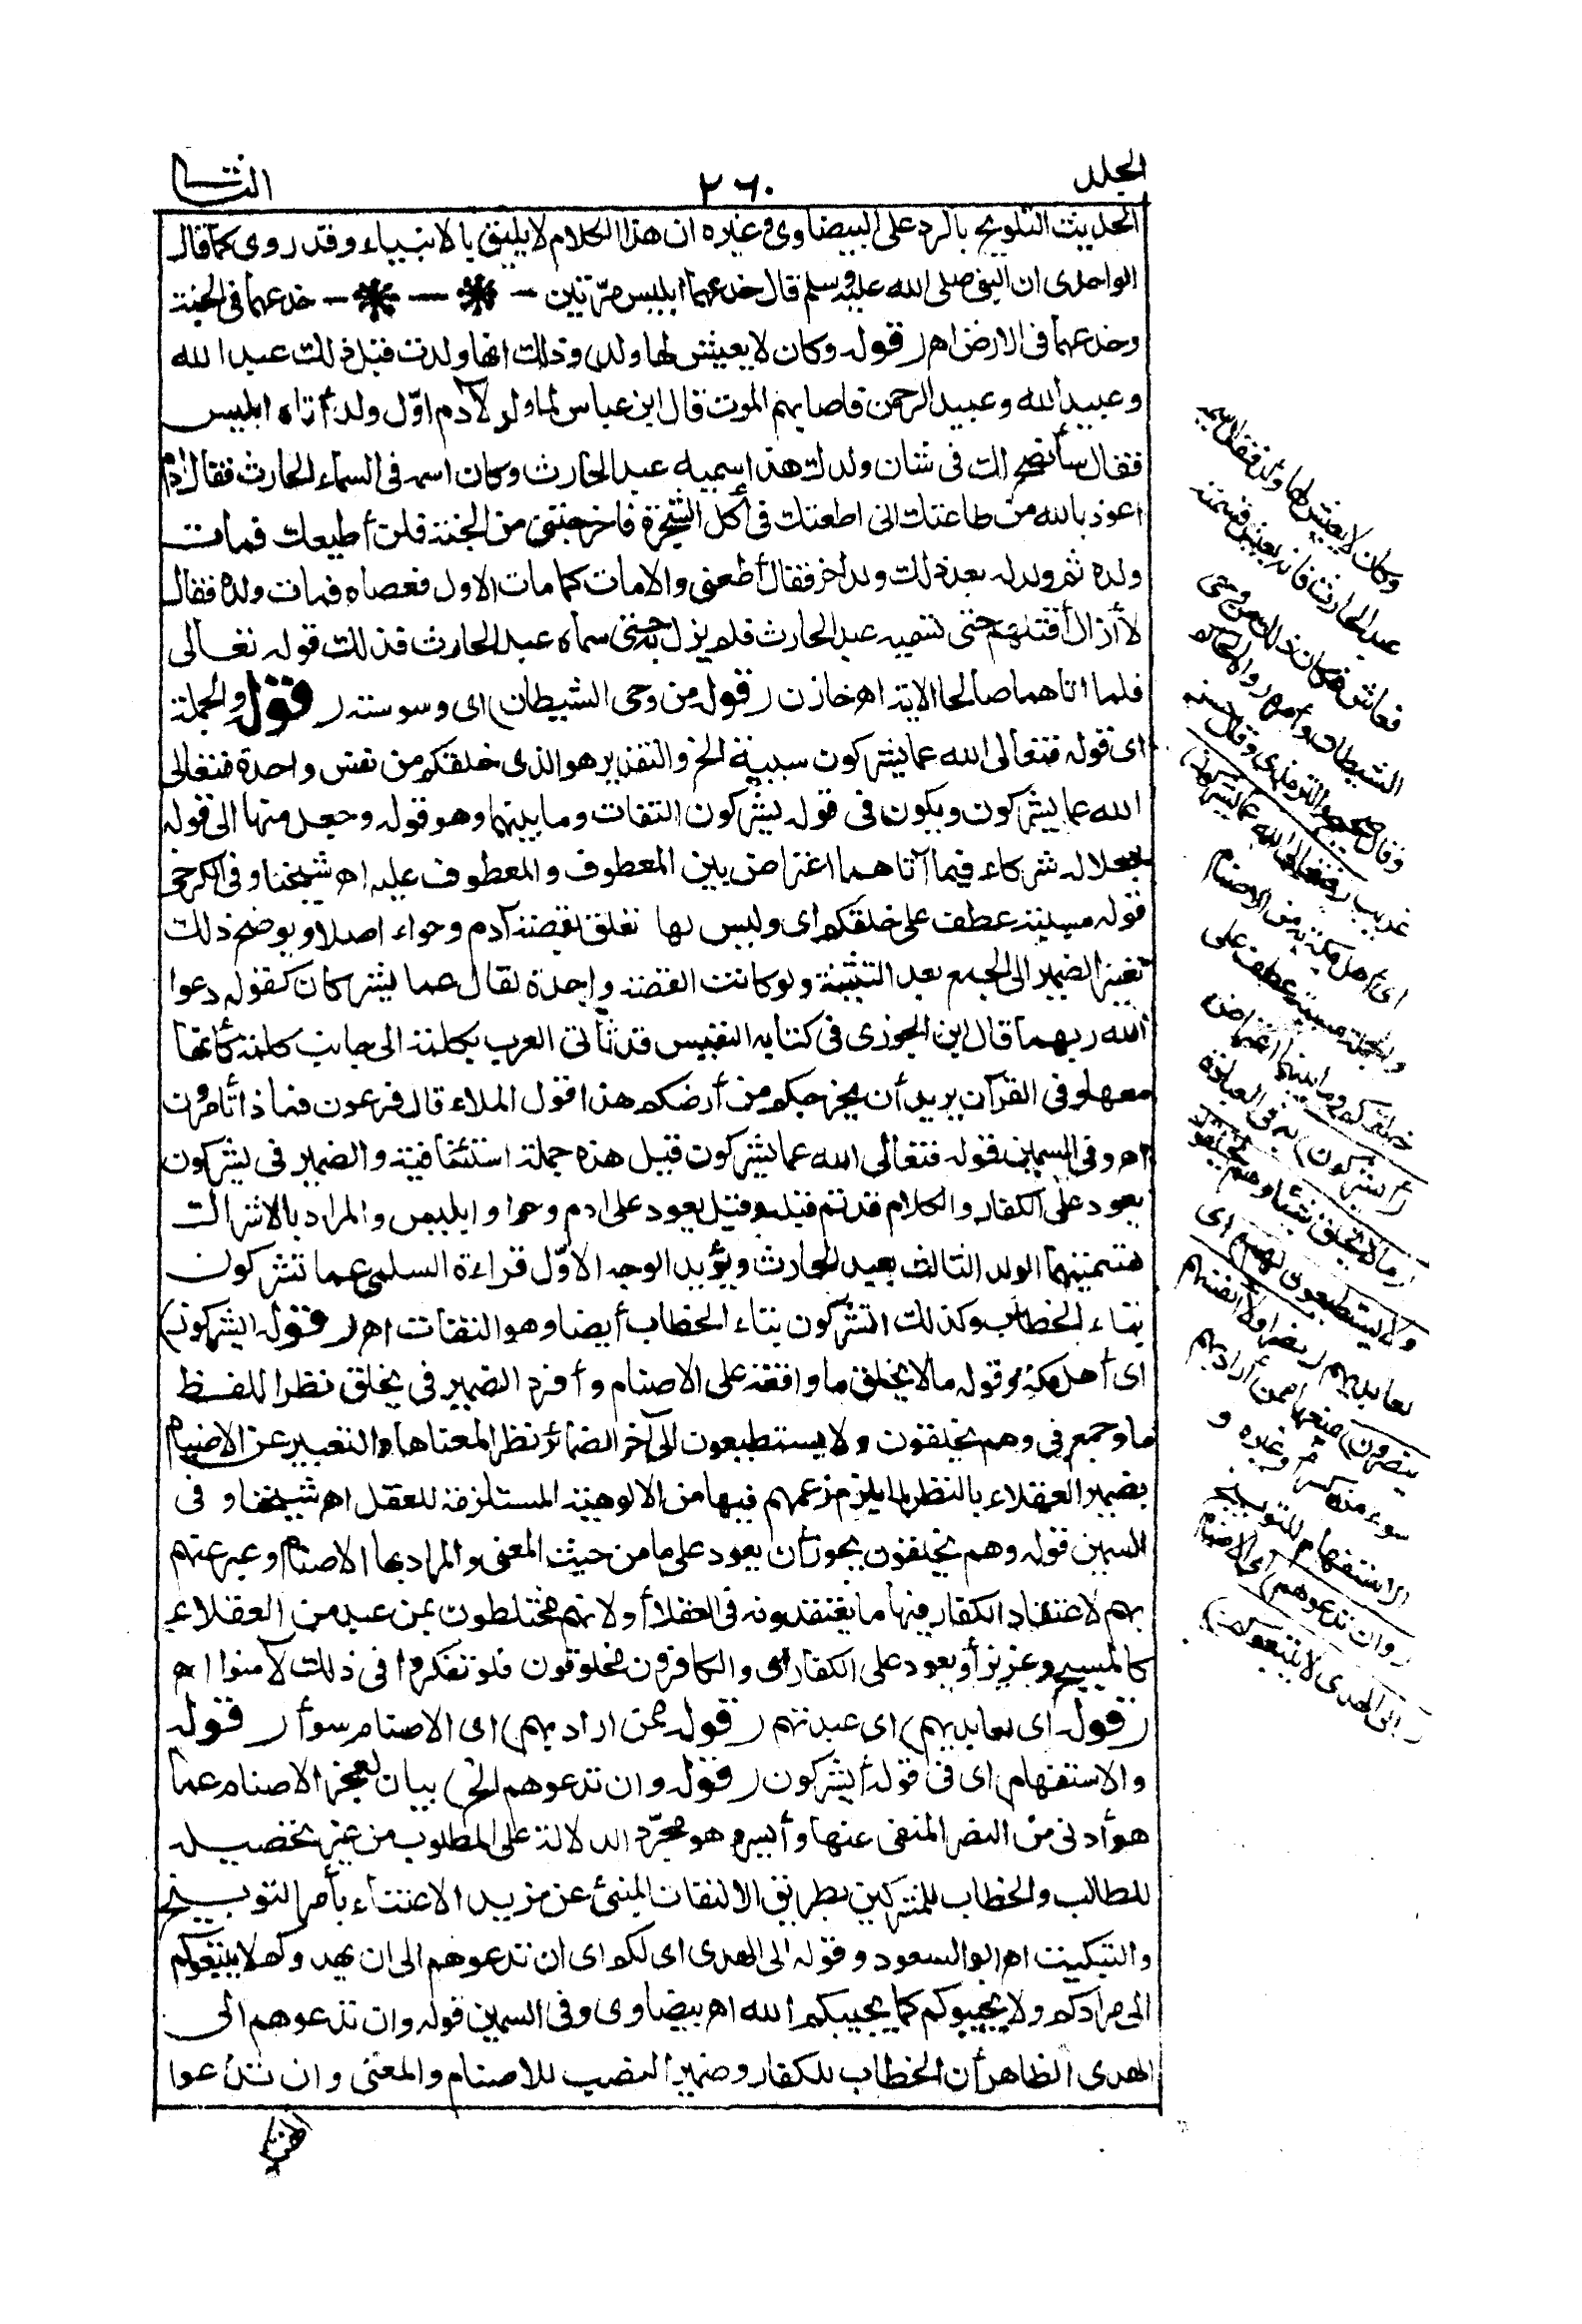 الجلد
٢٦٠
الثانى
الحديث التلويح بالرد على البيضاوى وغيره ان هذا الكلام لا يليق بالانبياء وقد روى كما قال
الواحدى ان النبى صلى الله عليه وسلم قال خدعهما ابليس مرّتين — — — خدعهما فى الجنة
وخدعهما فى الارض اهـ (قوله وكان لا يعيش لها ولد) وذلك انها ولدت قبل ذلك عبد الله
وعبيد الله وعبيد الرحمن فاصابهم الموت قال ابن عباس لما ولد لآدم اوّل ولد أتاه ابليس
فقال سأنصح لك فى شان ولدك هذا سميه عبد الحارث وكان اسمه فى السماء الحارث فقال آدم
اعوذ بالله من طاعتك انى اطعتك فى أكل الشجرة فاخرجتنى من الجنة فلن أطيعك فمات
ولده ثم ولد له بعد ذلك ولد آخر فقال أطعنى والا مات كما مات الاول فعصاه فمات ولده فقال
لا أزال أقتلهم حتى تسميه عبد الحارث فلم يزل به حتى سماه عبد الحارث فذلك قوله تعالى
فلما اتاهما صالحا الاية اهـ خازن (قوله من وحى الشيطان) اى وسوسته (قوله والجملة
اى قوله فتعالى الله عما يشركون سببية الخ والتقدير هو الذى خلقكم من نفس واحدة فتعالى
الله عما يشركون ويكون فى قوله يشركون التفات وما بينهما وهو قوله وجعل منها الى قوله
جعلا له شركاء فيما آتاهما اعتراض بين المعطوف والمعطوف عليه اهـ شيخنا وفى الكرخى
قوله مسببة عطف على خلقكم اى وليس لها تعلق بقصة آدم وحواء اصلا ويوضح ذلك
تغير الضمير الى الجمع بعد التثنية ولو كانت القصة واحدة لقال عما يشركان كقوله دعوا
الله ربهما قال ابن الجوزى فى كتابه النفيس قد تأتى العرب بكلمة الى جانب كلمة كأنها
معها وفى القرآن يريد أن يخرجكم من أرضكم هذا قول الملاء قال فرعون فماذا تأمرون
اهـ وفى السمين قوله فتعالى الله عما يشركون قيل هذه جملة استئنافية والضمير فى يشركون
يعود على الكفار والكلام قد تم قبله وقيل يعود على ادم وحوا وابليس والمراد بالاشراك
تسميتهما الولد الثالث بعبد الحارث ويؤيد الوجه الاوّل قراءة السلمى عما تشركون
بتاء الخطاب وكذلك اتشركون بتاء الخطاب أيضا وهو التفات اهـ (قوله ايشركون)
اى أهل مكة وقوله ما لا يخلق ما واقعة على الاصنام وأفرد الضمير فى يخلق نظرا للفظ
ما وجمع فى وهم يخلقون ولا يستطيعون الى آخر الضمائر نظرا لمعناها والتعبير عن الاصنام
بضمير العقلاء بالنظر لما يلزم زعمهم فيها من الالوهية المستلزمة للعقل اهـ شيخنا وفى
السمين قوله وهم يخلقون يجوز أن يعود على ما من حيث المعنى والمراد بها الاصنام وعبر عنهم
بهم لاعتقاد الكفار فيها ما يعتقدونه فى العقلا أو لانهم مختلطون بمن عبد من العقلاء
كالمسيح وعزير أو يعود على الكفار اى والكافرون مخلوقون فلو تفكروا فى ذلك لآمنوا اهـ
(قوله اى لعابديهم) اى عبدتهم (قوله ممن ارادبهم) اى الاصنام سوأ (قوله
والاستفهام) اى فى قوله أيشركون (قوله وان تدعوهم الخ) بيان لعجز الاصنام عما
هو أدنى من النصر المنفى عنها وأيسر وهو مجرّد الدلالة على المطلوب من غير تحصيله
للطالب والخطاب للمشركين بطريق الالتفات المنبئ عن مزيد الاعتناء بأمر التوبيخ
والتبكيت اهـ ابو السعود وقوله الى الهدى اى لكم اى ان تدعوهم الى ان يهدوكم لا يتبعوكم
الى مرادكم ولا يجيبوكم كما يجيبكم الله اهـ بيضاوى وفى السمين قوله وان تدعوهم الى
الهدى الظاهر أن الخطاب للكفار وضمير النصب للاصنام والمعنى وان تدعوا
وكان لا يعيش لها ولد فقال سميه
عبد الحارث فانه يعيش فسمته
فعاش فكان ذلك من وحى
الشيطان وأمره رواه الحاكم
وقال صحيح والترمذى وقال حسن
غريب (فتعالى الله عما يشركون)
اى أهل مكة به من الاصنام
والجملة مسببة عطف على
خلقكم وما بينهما اعتراض
(أيشركون) به فى العبادة
(ما لا يخلق شيئا وهم يخلقون
ولا يستطيعون لهم) اى
لعابديهم (نصرا ولا أنفسهم
ينصرون) بمنعها ممن أراد بهم
سوء من كسر وغيره و
الاستفهام للتوبيخ
(وان تدعوهم) اى الاصنام
(الى الهدى لا يتبعوكم)